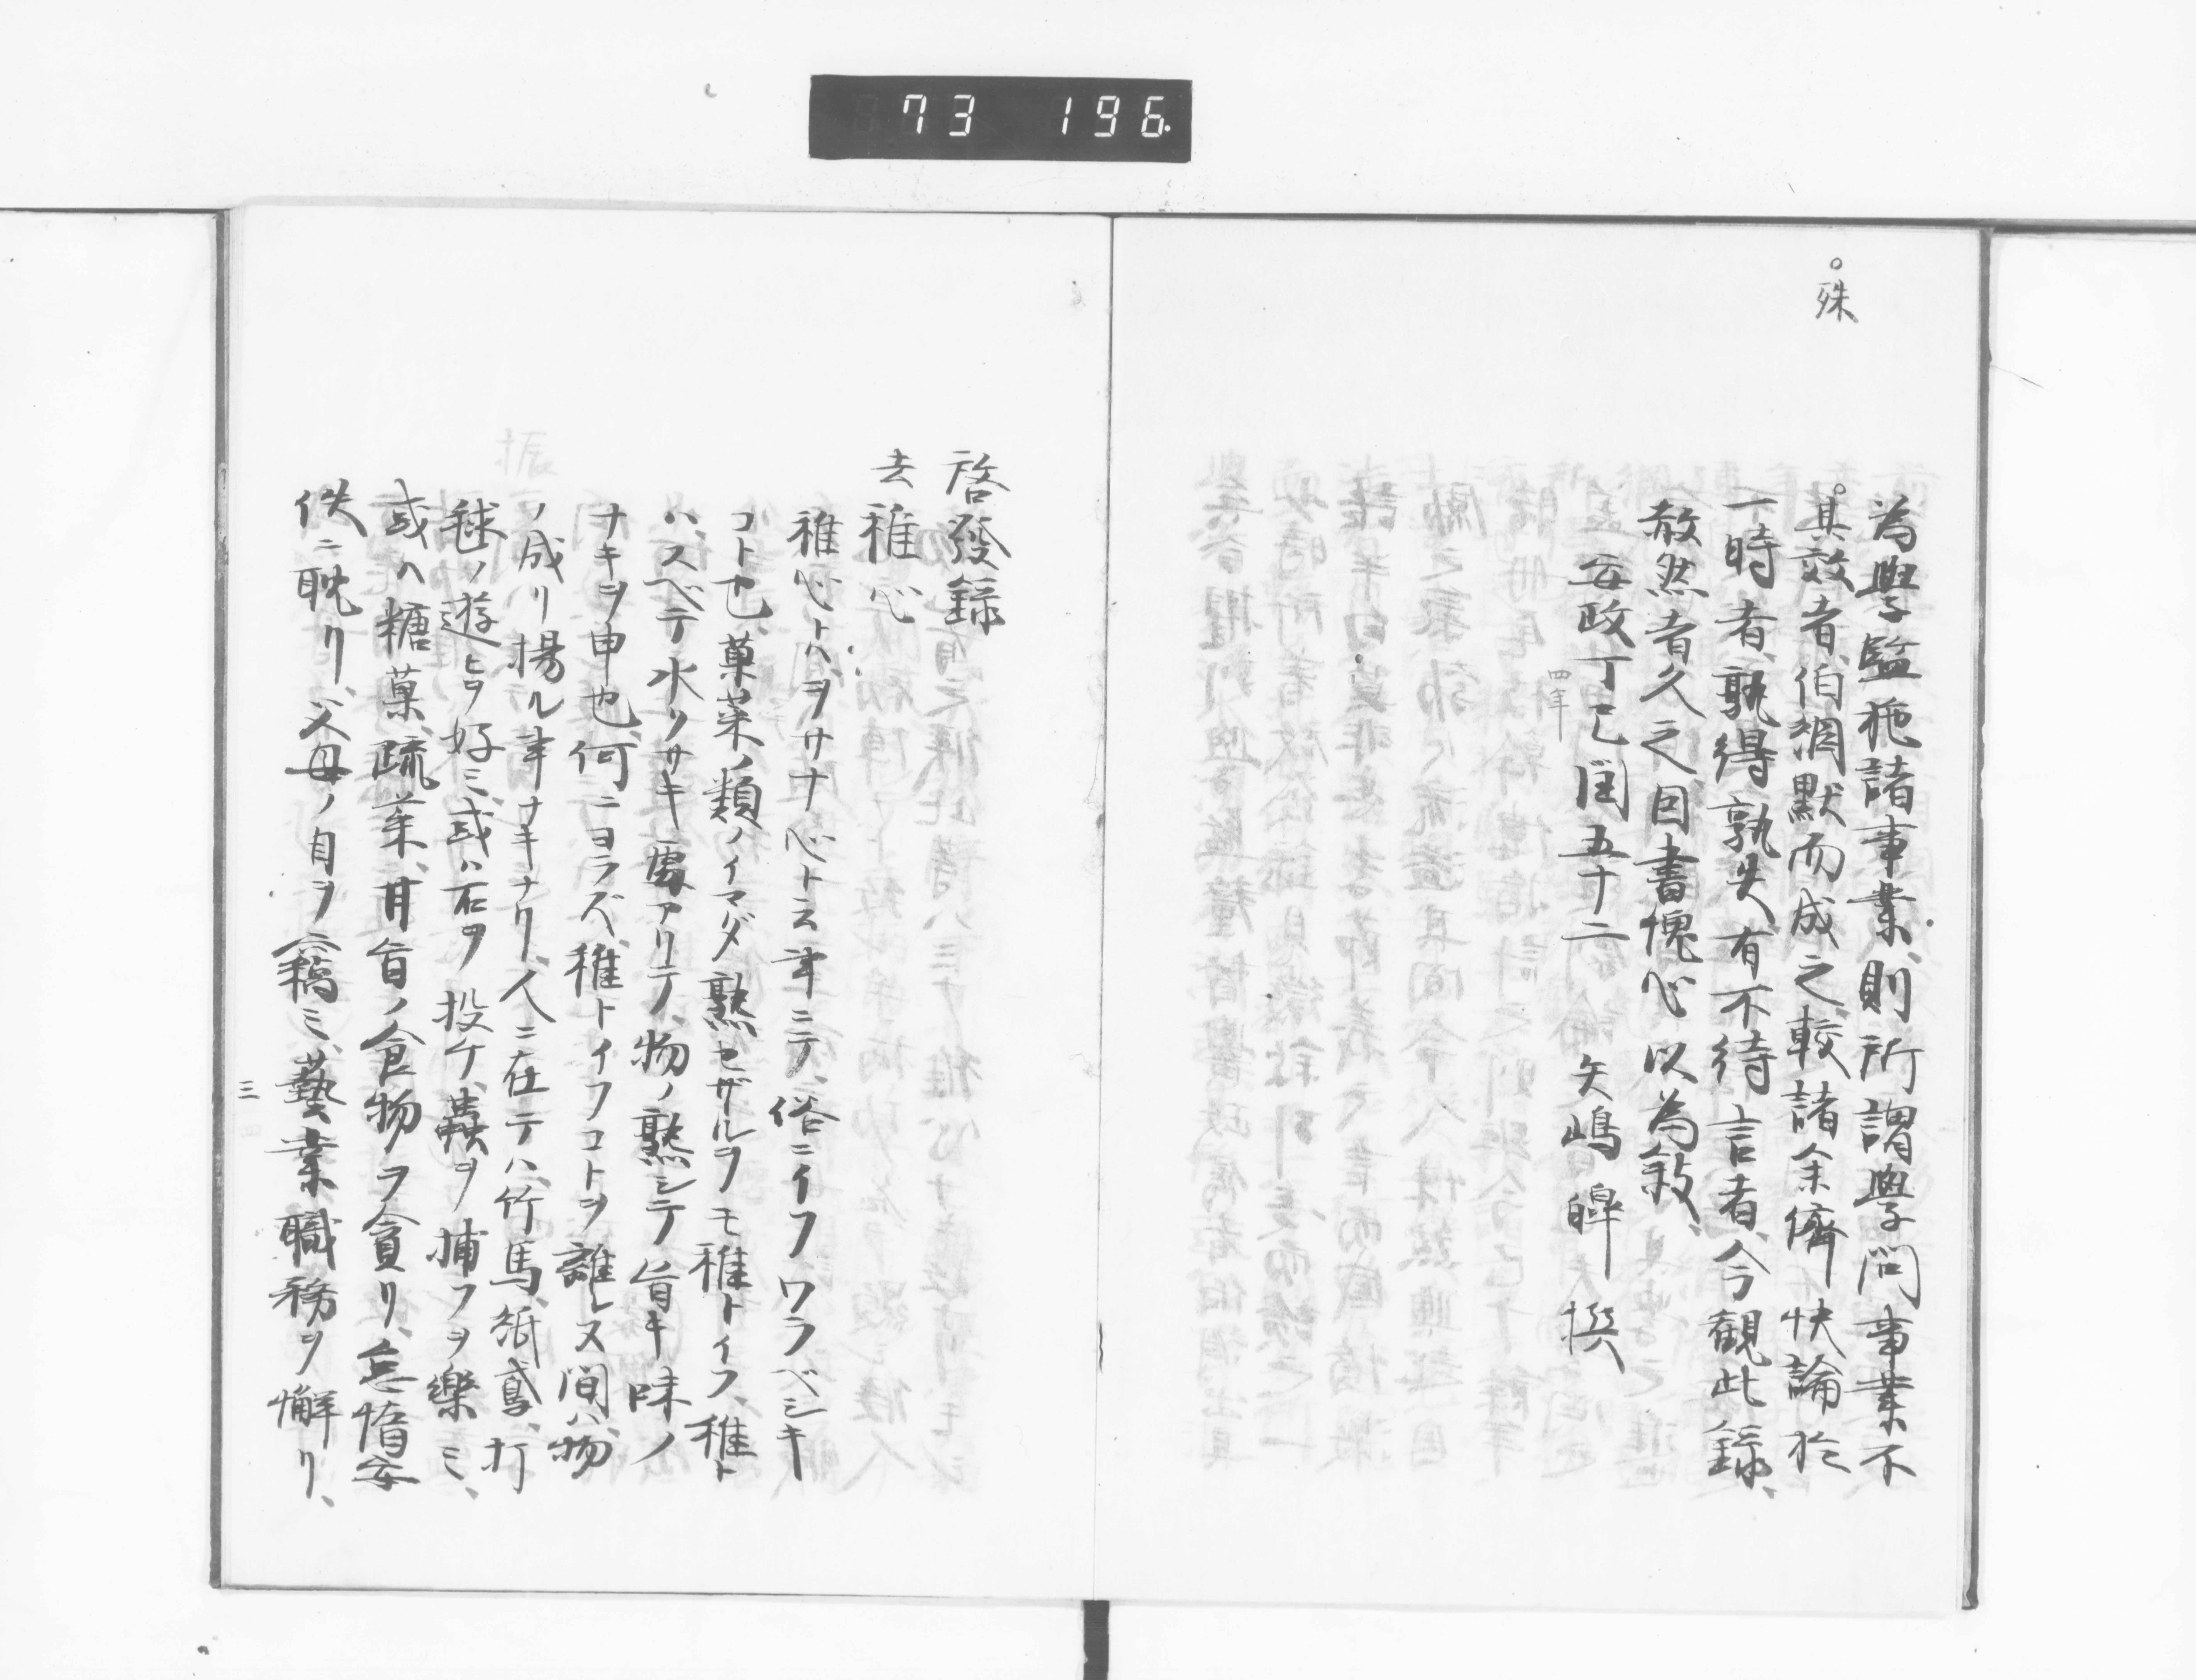 73 196
。殊
為學監施諸事業、則所謂學問事業不
。其效者、伯綱默而成之、較諸余儕快論於
一時者、孰得孰失、有不待言者、今観此録、
赧然者久之、因書愧心以為敍、
安政丁巳閏五十二 矢嶋皥撰
四年
啓發録
去稚心
稚心トハヲサナ心ト云事ニテ、俗ニイフワラベシキ
コト也、菓菜ノ類ノイマダ熟セザルヲモ稚トイフ、稚ト
ハスベテ水クサキ處アリテ、物ノ熟シテ旨キ味ノ
ナキヲ申也、何ニヨラズ、稚トイフコトヲ離レヌ間ハ、物
ノ成リ揚ル事ナキナリ、人ニ在テハ、竹馬、紙鳶、打
毬ノ遊ヒヲ好ミ、或ハ石ヲ投ケ、蟲ヲ捕フヲ樂ミ、
或ハ糖菓、蔬菜、甘旨ノ食物ヲ貪リ、怠惰安
佚ニ耽リ、父母ノ目ヲ竊ミ、藝業職務ヲ懈リ、
三